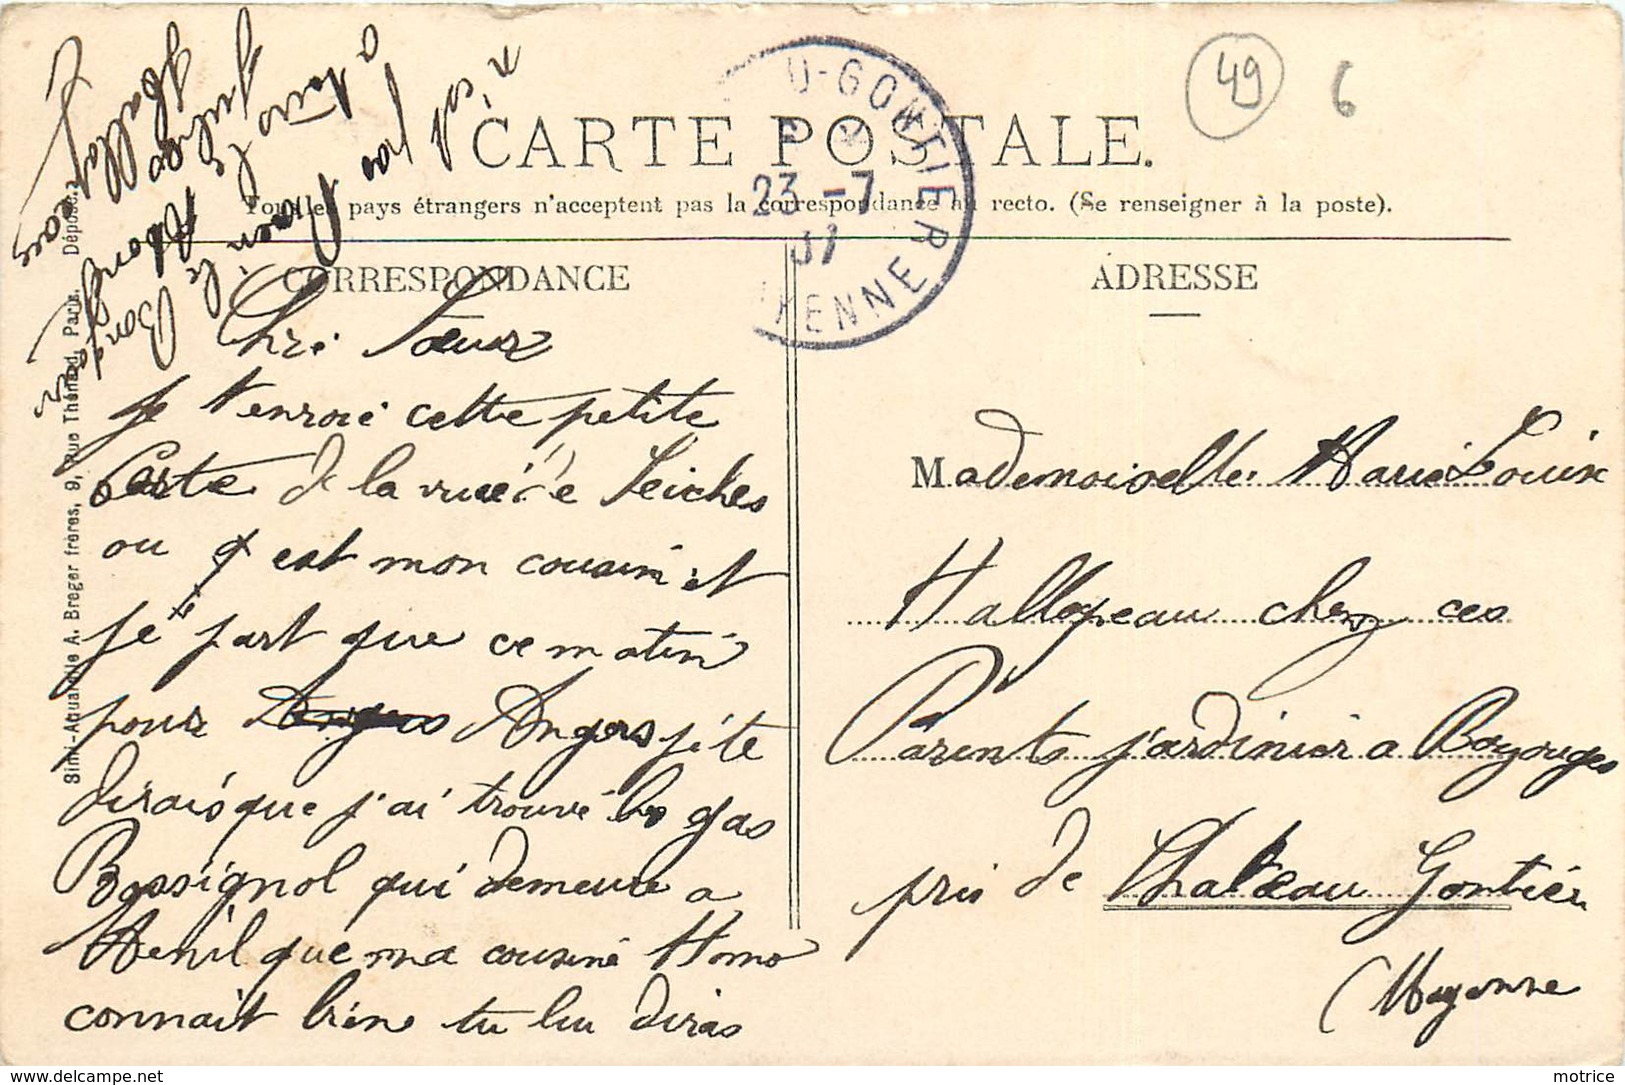 49
6
CARTE POSTALE.
Tous les pays étrangers n'acceptent pas la correspondance au recto. (Se renseigner à la poste).
U-GONTIER
23 -7
07
YENNE
CORRESPONDANCE
Chré Soeur
Je t'envoie cette petite
Carte de la vue de Seiches
ou q'est mon cousin et
je part que ce matin
pour Angers Angers je te
dirais que j'ai trouvé les gas
Rossignol qui demeure a
Menil que ma cousine Homo
connait bien tu lui diras
a tous
n'est pas
Bon
Jules
Hallop
ADRESSE
Mademoiselle Marie Louise
Hallopeau chez ces
Parents jardinier a Bozouges
pris de Chateau Gontier
(Mayenne
Simi-Aquarelle A. Breger frères, 9, Rue Thénard, Paris. Déposé.
motrice